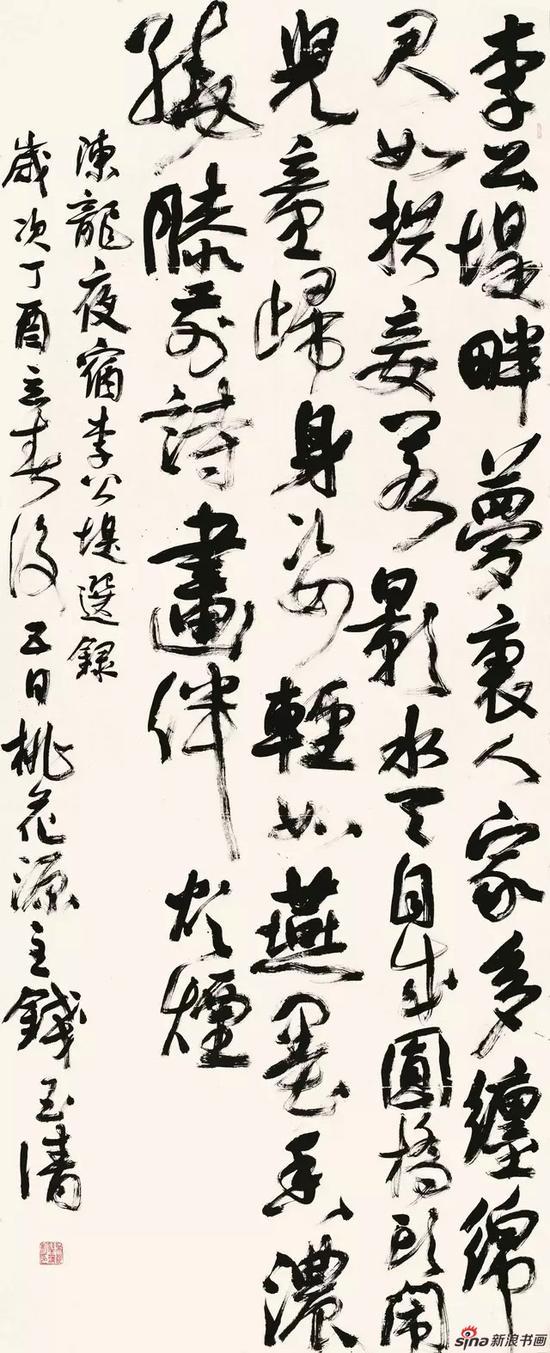 李公堤畔夢裏人家多纏綿
君如拱妾若影水天自成圓橋頭鬧
兒童歸身姿輕如燕墨香濃
繞膝前詩畫伴炊煙
陳龍夜宿李公堤選録
歲次丁酉立春後五日桃花源主錢玉清
sina新浪书画